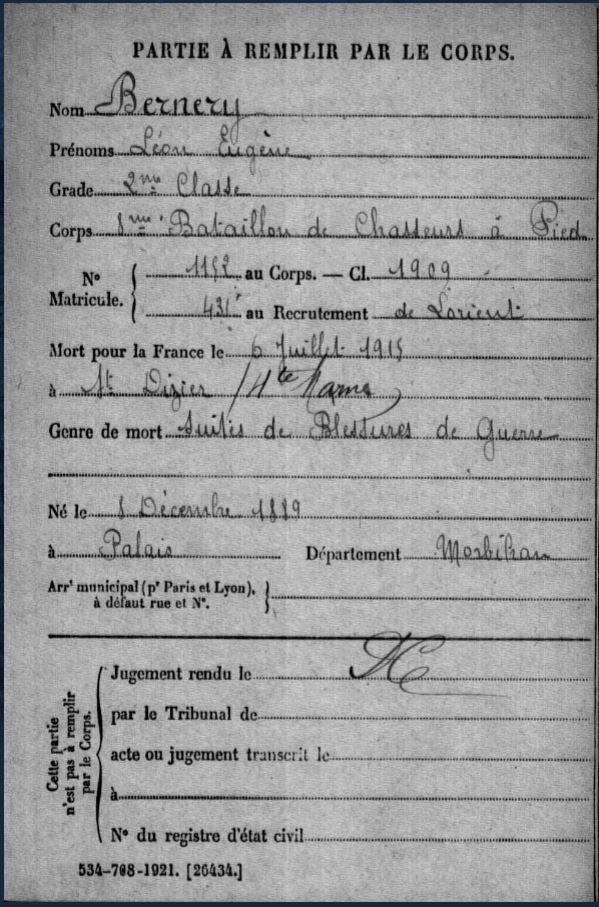 PARTIE À REMPLIR PAR LE CORPS.
Nom Bernery
Prénoms Léon Eugène
Grade 2me Classe
Corps 8me Bataillon de Chasseurs à Pied
N° Matricule. { 1152 au Corps. — Cl. 1909
431 au Recrutement de Lorient
Mort pour la France le 6 Juillet 1915
à St Dizier (Hte Marne)
Genre de mort Suites de Blessures de Guerre
Né le 8 Décembre 1889
à Palais Département Morbihan
Arrt municipal (pr Paris et Lyon),
à défaut rue et N°.
Cette partie
n'est pas à remplir
par le Corps.
Jugement rendu le
par le Tribunal de
acte ou jugement transcrit le
à
N° du registre d'état civil
534-708-1921. [26434.]